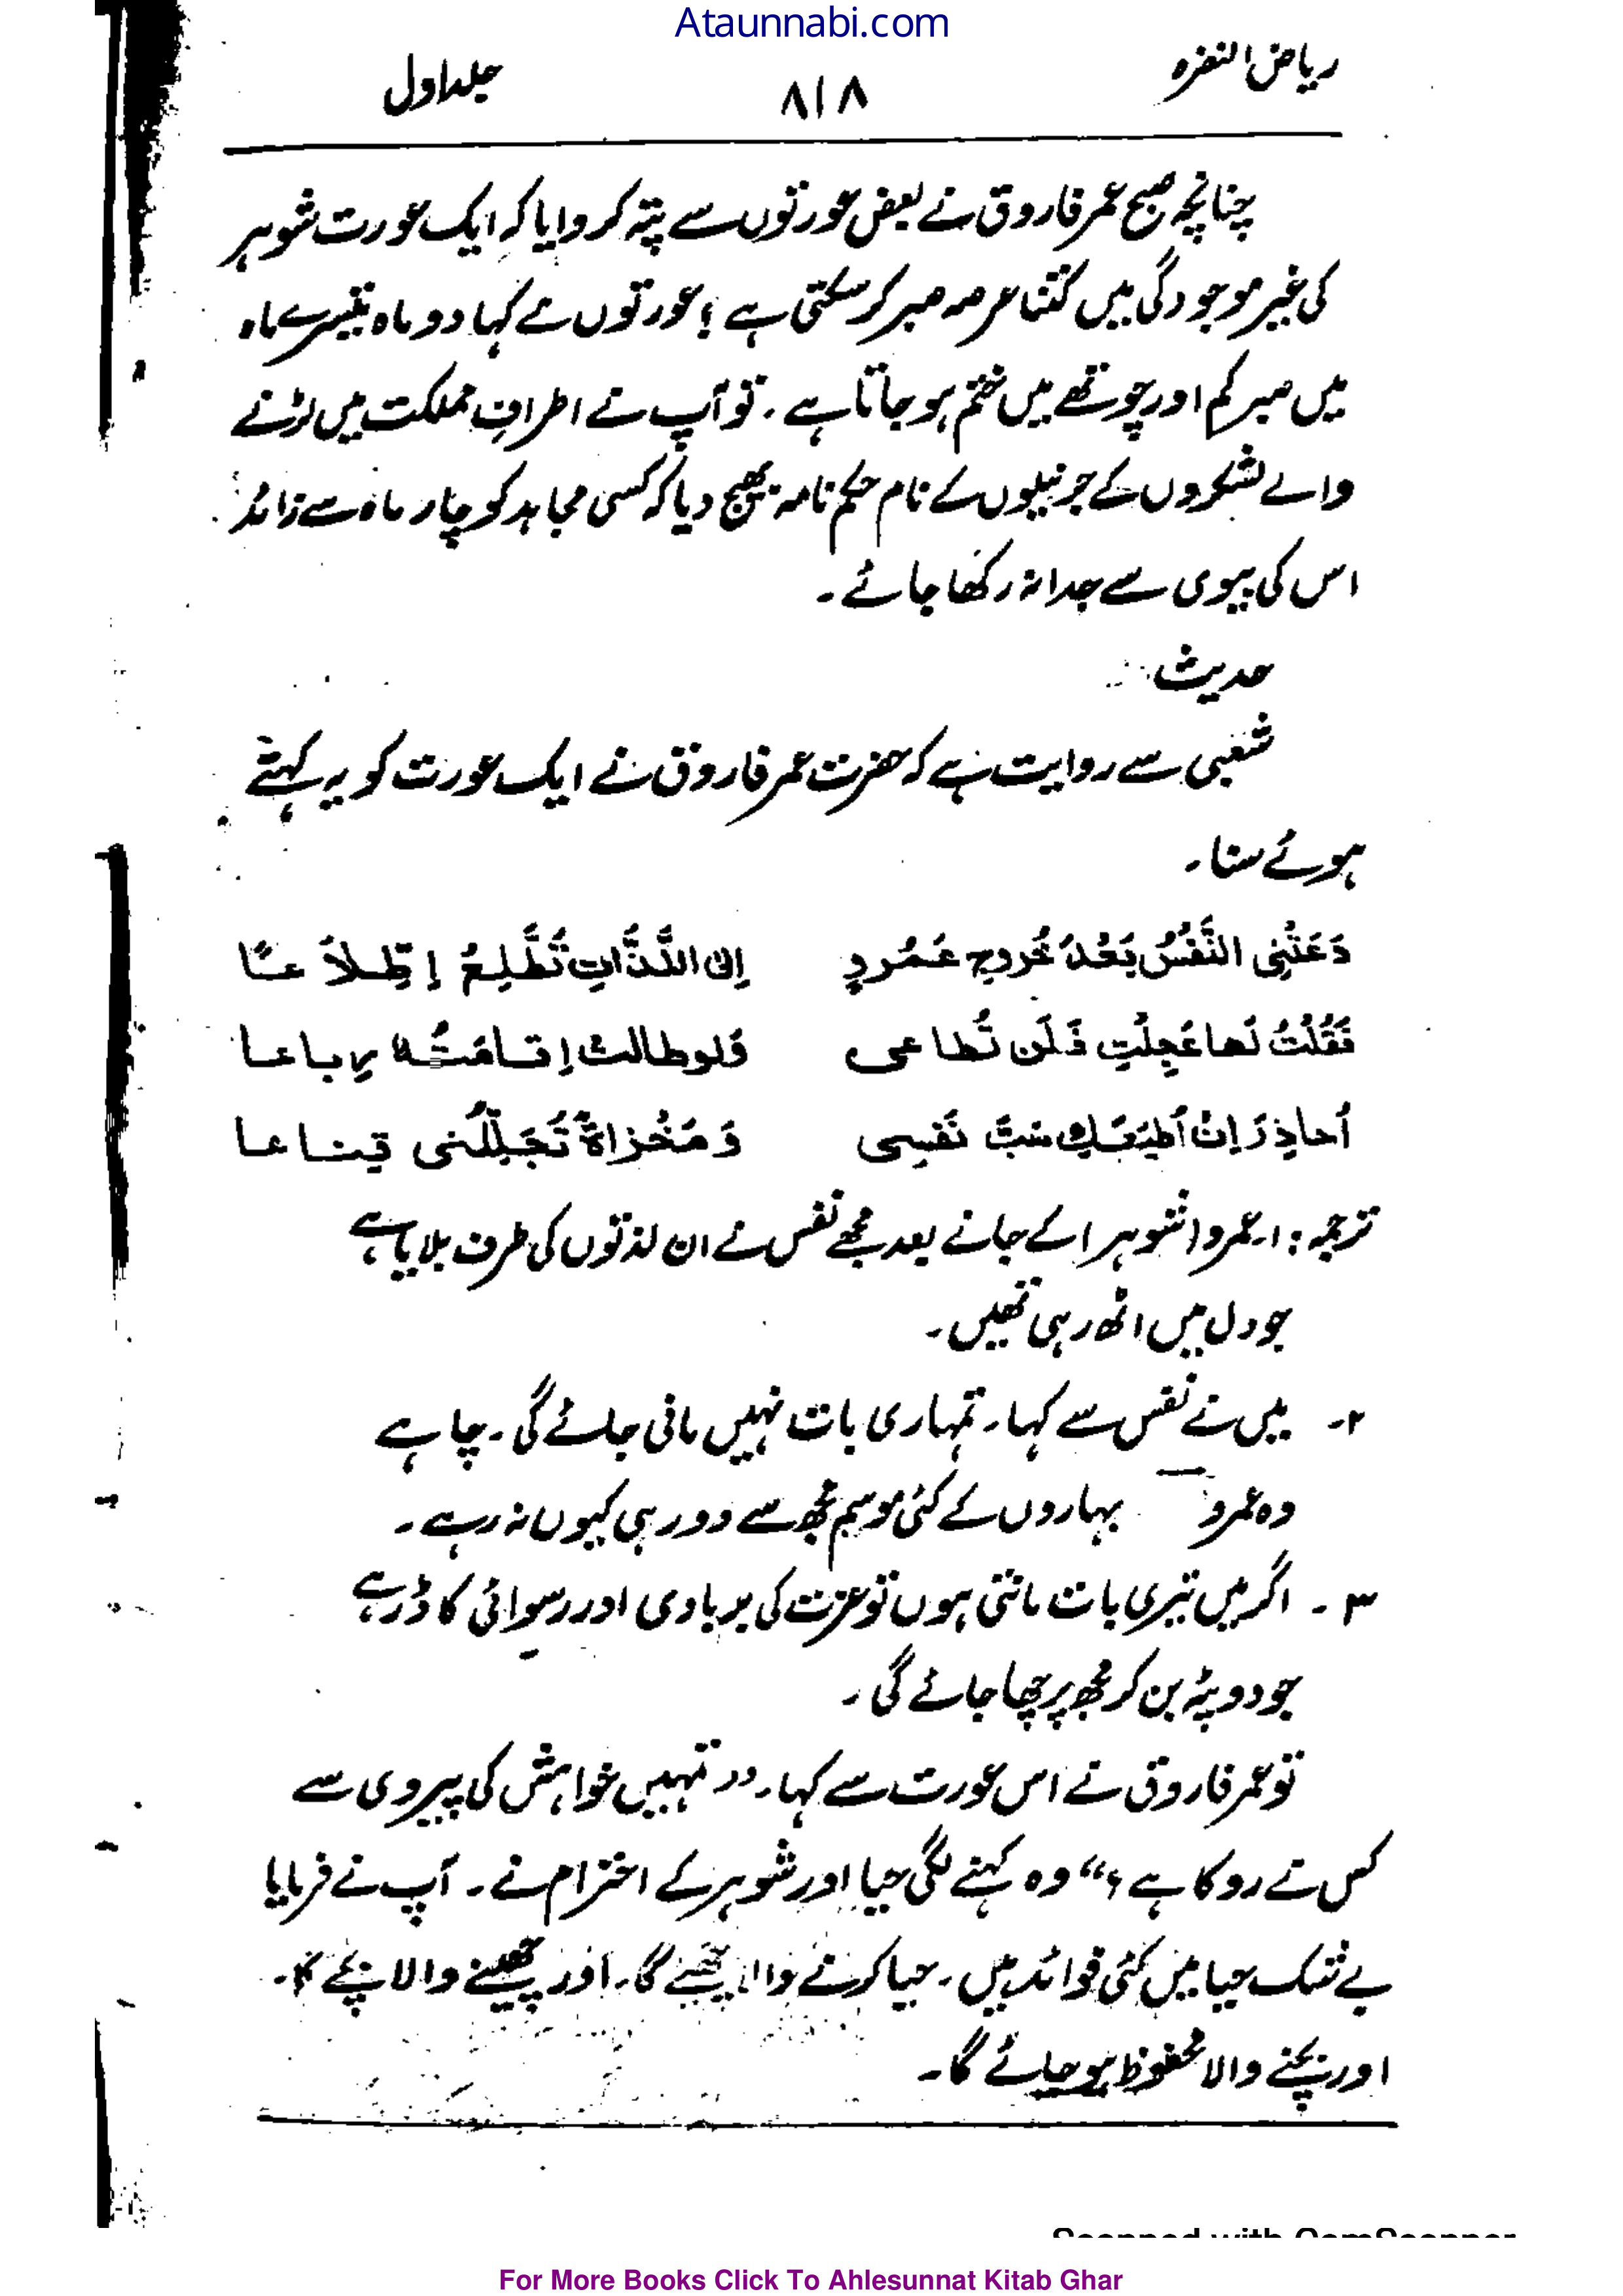 Ataunnabi.com
ریاض النضرہ ۸۱۸ جلد اول
چنانچہ صبح عمر فاروق نے بعض عورتوں سے پتہ کروایا کہ ایک عورت شوہر
کی غیر موجودگی میں کتنا عرصہ صبر کر سکتی ہے؟ عورتوں نے کہا دو ماہ تیسرے ماہ
میں صبر کم اور چوتھے میں ختم ہو جاتا ہے۔ تو آپ نے اطرافِ مملکت میں لڑنے
والے لشکروں کے جرنیلوں کے نام حکم نامہ بھیج دیا کہ کسی مجاہد کو چار ماہ سے زائد
اس کی بیوی سے جدا نہ رکھا جائے۔
حدیث
شعبی سے روایت ہے کہ حضرت عمر فاروق نے ایک عورت کو یہ کہتے
ہوئے سنا۔
دَعَتْنِی النَّفْسُ بَعْدَ خُروجِ عَمْرٍو اِلی اللَّذَّاتِ تَطَّلِعُ اِطِّلاَعًا
فَقُلْتُ لَها عَجِلْتِ فَلَن تُطاعی وَلو طالت اِقامَتُہ رِباعا
اُحاذِرُ اِنْ اُطِیْعَکِ سَبَّ نَفسِی وَمَخْزاةً تُجَلِّلُنی قِناعا
ترجمہ: ۱۔ عمرو (شوہر) کے جانے بعد مجھے نفس نے ان لذتوں کی طرف بلایا ہے
جو دل میں اٹھ رہی تھیں۔
۲۔ میں نے نفس سے کہا۔ تمہاری بات نہیں مانی جائے گی۔ چاہے
وہ عمرو بہاروں کے کئی موسم مجھ سے دور ہی کیوں نہ رہے۔
۳۔ اگر میں تیری بات مانتی ہوں تو عزت کی بربادی اور رسوائی کا ڈر ہے
جو دوپٹہ بن کر مجھ پر چھا جائے گی۔
تو عمر فاروق نے اس عورت سے کہا۔ ”تمہیں خواہش کی پیروی سے
کس نے روکا ہے؟“ وہ کہنے لگی حیا اور شوہر کے احترام نے۔ آپ نے فرمایا
بے شک حیا میں کئی فوائد ہیں۔ حیا کرنے والا چھپے گا۔ اور چھپنے والا بچے گا۔
اور بچنے والا محفوظ ہو جائے گا۔
Scanned with CamScanner
For More Books Click To Ahlesunnat Kitab Ghar